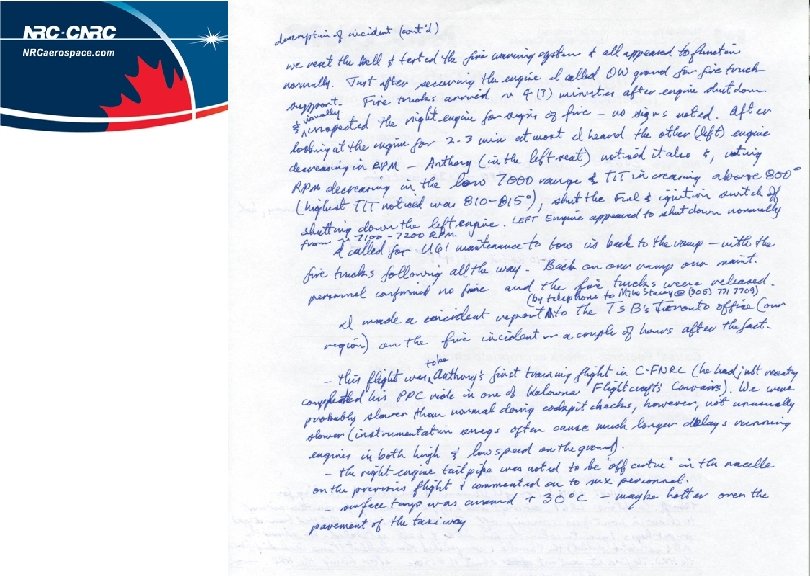 NRC·CNRC
NRCaerospace.com
description of incident (cont'd)
we rang the bell & tested the fire warning system & all appeared to function
normally. Just after securing the engine I called OW ground for fire truck
support. Fire trucks arrived in 4 (3) minutes after engine shutdown
& visually inspected the right engine for signs of fire – no signs noted. After
looking at the engine for 2-3 min at most I heard the other (left) engine
decreasing in RPM – Anthony (in the left seat) noticed it also &, noting
RPM decreasing in the low 7000 range & TIT increasing above 800°
(highest TIT noticed was 810-815°), shut the Fuel & ignition switch off
shutting down the left engine. LEFT Engine appeared to shut down normally
from ~ 7100 - 7200 RPM
I called for U61 maintenance to tow us back to the ramp – with the
fire trucks following all the way. Back on our ramp our maint.
personnel confirmed no fire and the fire trucks were released.
(by telephone to Mike Stacey @ (905) 771 7709)
I made a incident report to the TSB's Toronto office (our
region) on the fire incident a couple of hours after the fact.
– this flight was to be Anthony's first training flight in C-FNRC (he had just recently
completed his PPC ride in one of Kelowna Flightcraft's Convairs). We were
probably slower than normal doing cockpit checks, however, not unusually
slower (instrumentation snags often cause much longer delays running
engines in both high & low speed on the ground).
– the right engine tail pipe was noted to be "off centre" in the nacelle
on the previous flight & commented on to personnel.
– surface temp was around + 30°C – maybe hotter over the
pavement of the taxiway